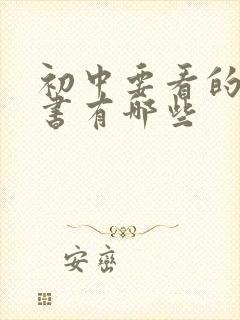 初中要看的
书有哪些
安峦